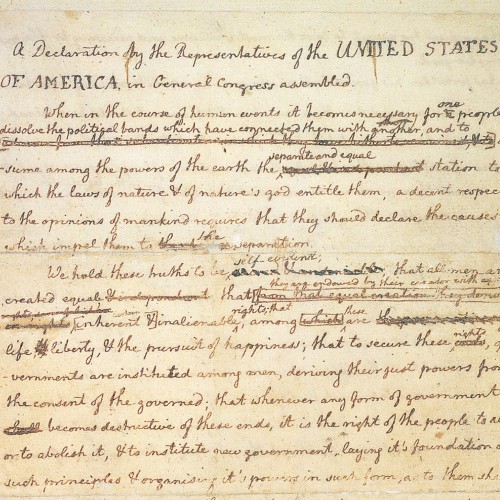 A Declaration by the Representatives of the UNITED STATES
OF AMERICA, in General Congress assembled.
When in the course of human events it becomes necessary for one people
dissolve the political bands which have connected them with another, and to
-sume among the powers of the earth the separate and equal station to
which the laws of nature & of nature's god entitle them, a decent respect
to the opinions of mankind requires that they should declare the causes
which impel them to the separation.
We hold these truths to be self-evident, that all men are
created equal & independent, that they are endowed by their creator with
from that equal creation they
rights; that
inherent & inalienable, among which these are
life & liberty, & the pursuit of happiness; that to secure these rights, go
vernments are instituted among men, deriving their just powers from
the consent of the governed; that whenever any form of government
becomes destructive of these ends, it is the right of the people to al
or to abolish it, & to institute new government, laying it's foundation o
such principles & organising it's powers in such form, as to them sh